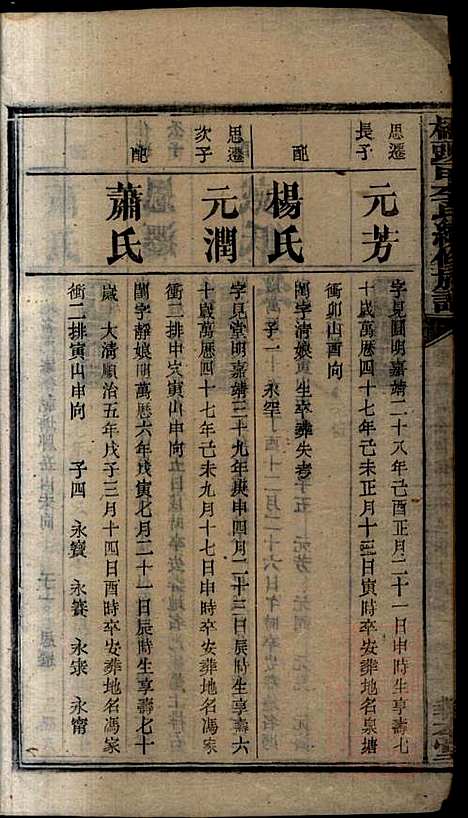 思遷長子
元芳
字見圓明嘉靖二十八年己酉正月二十一日申時生享壽七
十歲萬曆四十七年己未正月十三日寅時卒安葬地名泉塘
衝卯山酉向
配
楊氏
閨字清娘 生卒葬失考
子一 永罕
思遷次子
元潤
字見堂明嘉靖三十九年庚申四月二十三日辰時生享壽六
十歲萬曆四十七年己未九月十七日申時卒安葬地名馮家
衝二排申穴寅山申向
配
蕭氏
閨字靜娘明萬曆六年戊寅七月二十一日辰時生享壽七十
歲 大清順治五年戊子三月十四日酉時卒安葬地名馮家
衝二排寅山申向 子四 永寶 永賽 永隶 永甯